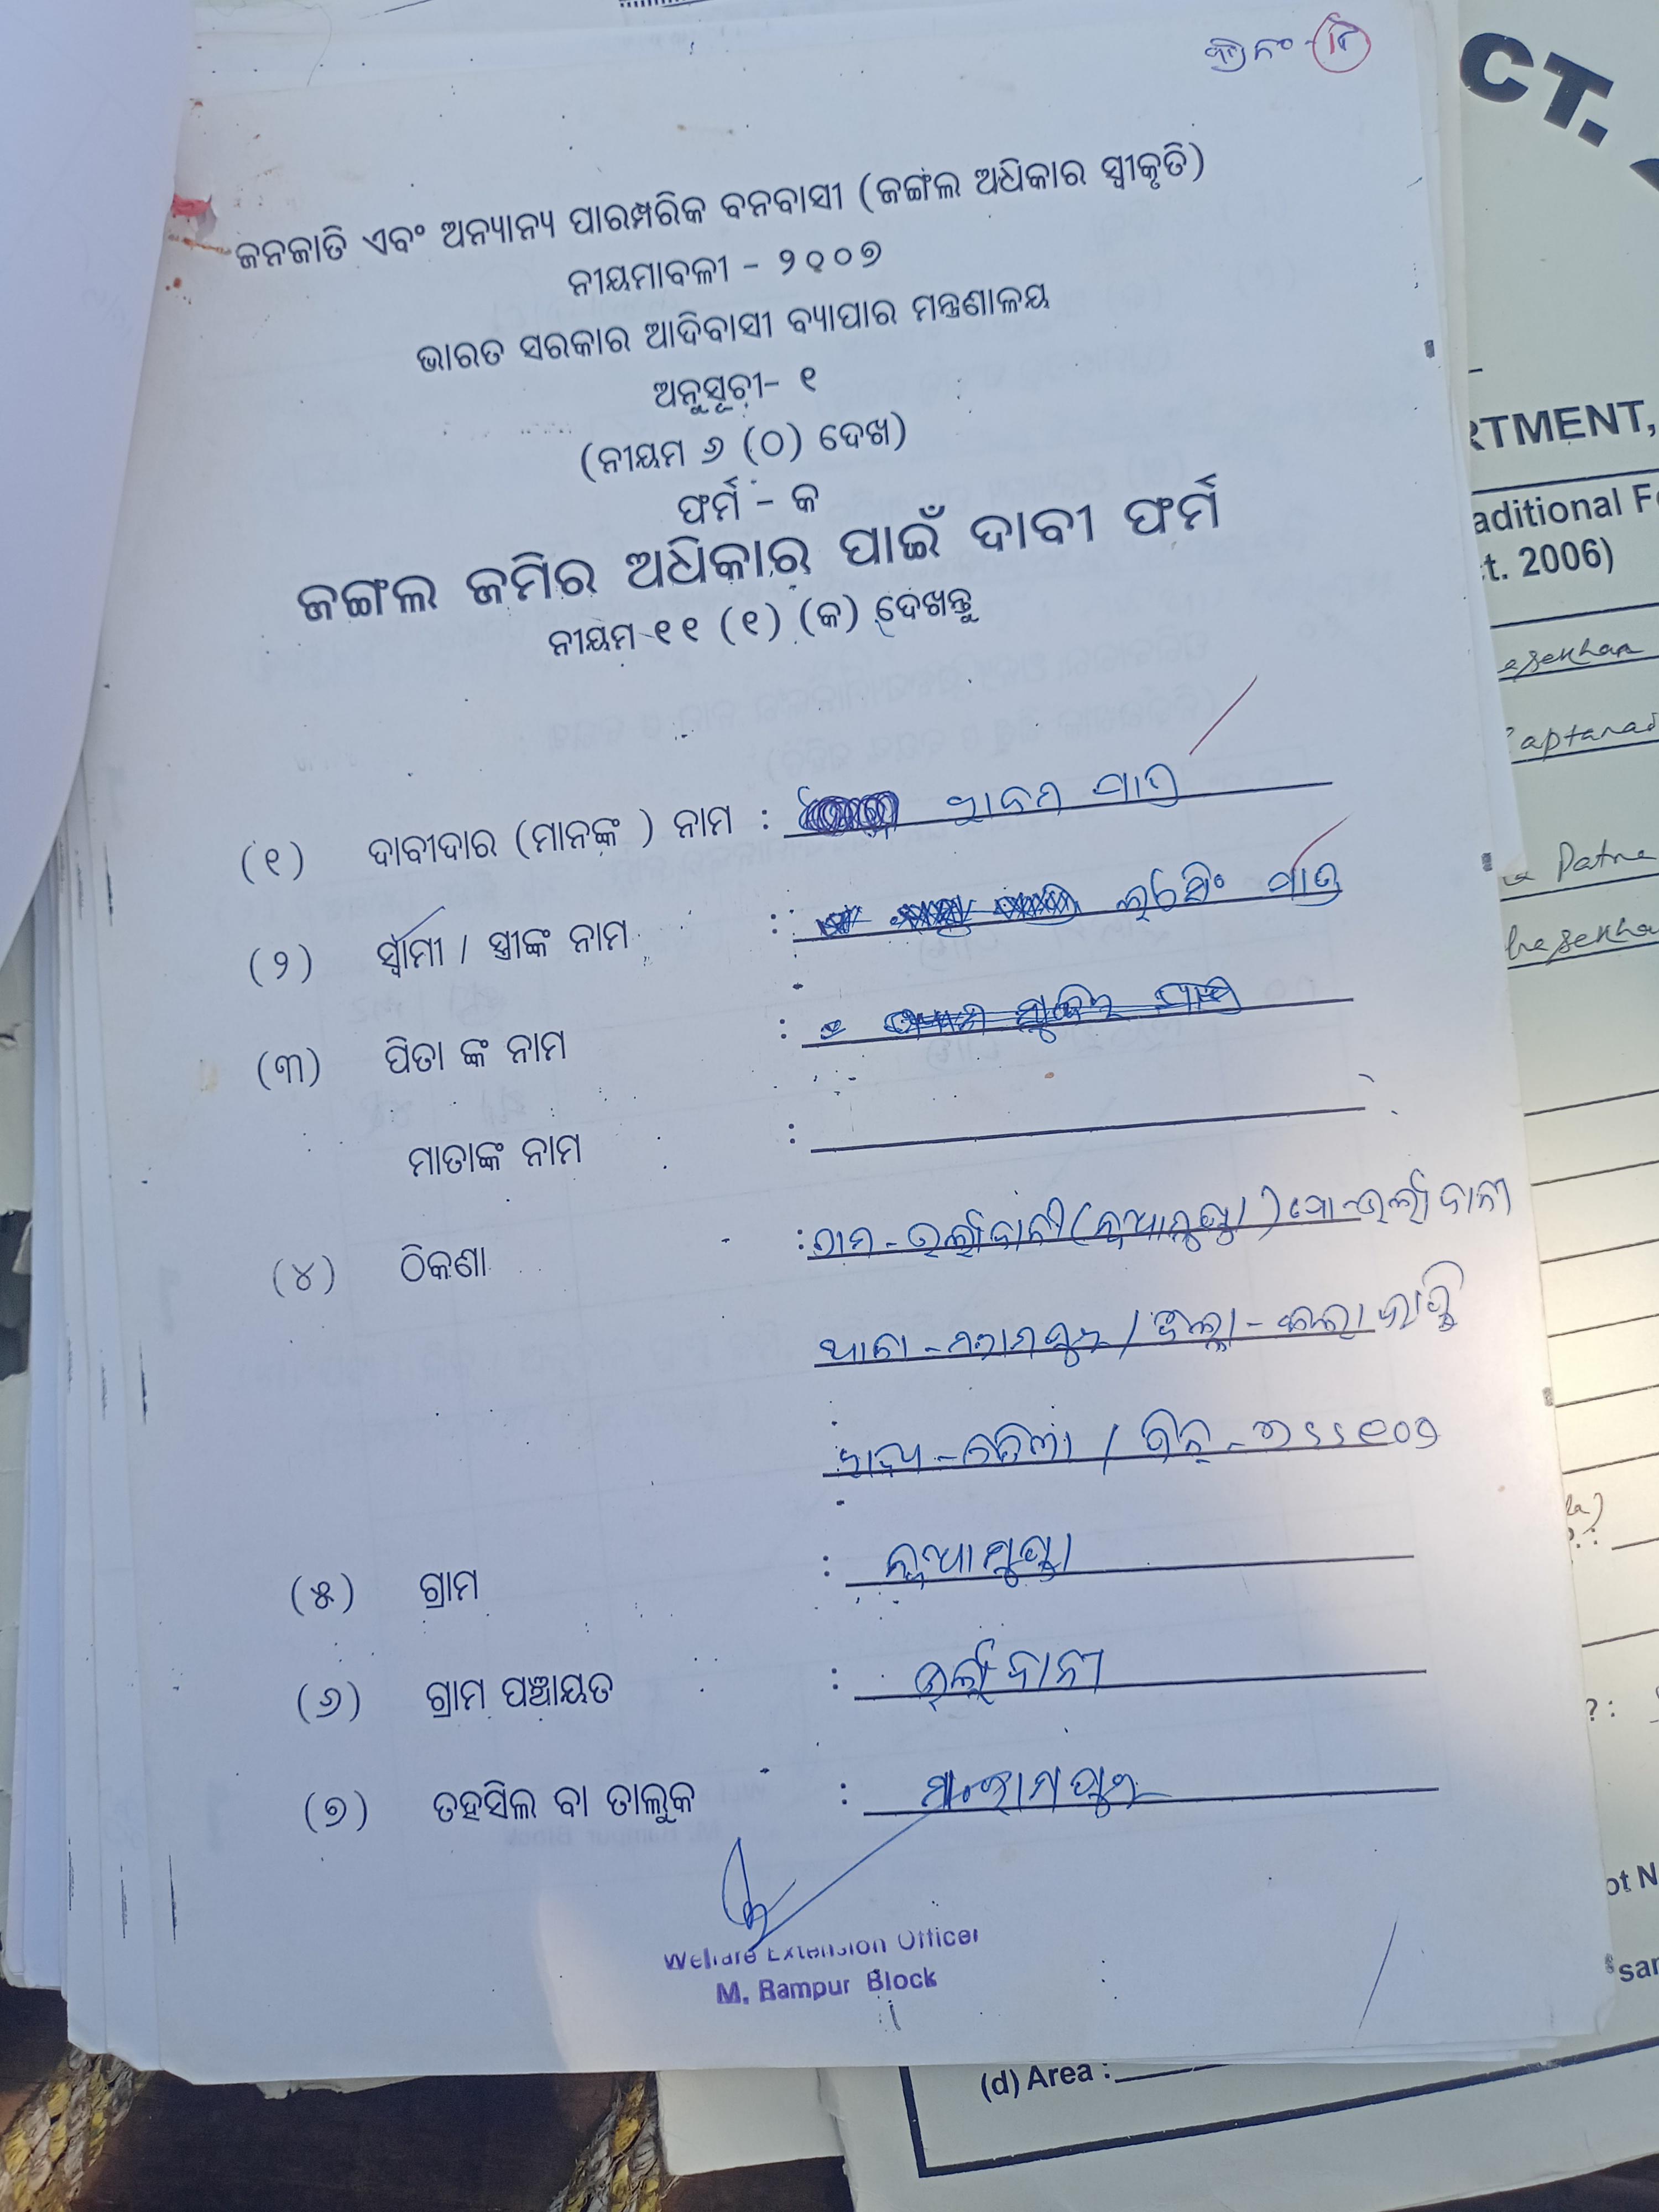 କ୍ର.ନଂ -
ଜନଜାତି ଏବଂ ଅନ୍ୟାନ୍ୟ ପାରମ୍ପରିକ ବନବାସୀ (ଜଙ୍ଗଲ ଅଧିକାର ସ୍ୱୀକୃତି)
ନୀୟମାବଳୀ - ୨୦୦୭
ଭାରତ ସରକାର ଆଦିବାସୀ ବ୍ୟାପାର ମନ୍ତ୍ରଣାଳୟ
ଅନୁସୂଚୀ- ୧
(ନୀୟମ ୬ (୦) ଦେଖ)
ଫର୍ମ - କ
ଜଙ୍ଗଲ ଜମିର ଅଧିକାର ପାଇଁ ଦାବୀ ଫର୍ମ
ନୀୟମ ୧୧ (୧) (କ) ଦେଖନ୍ତୁ
(୧) ଦାବୀଦାର (ମାନଙ୍କ ) ନାମ : ପାତ୍ର
(୨) ସ୍ୱାମୀ / ସ୍ତ୍ରୀଙ୍କ ନାମ : ପାତ୍ର
(୩) ପିତା ଙ୍କ ନାମ :
ମାତାଙ୍କ ନାମ :
(୪) ଠିକଣା : ଗ୍ରାମ - ଉର୍ଲାଦାନୀ (ନୂଆମୁଣ୍ଡା) ପୋ- ଉର୍ଲାଦାନୀ
ଥାନା - ମ.ରାମପୁର / ଜିଲ୍ଲା - କଳାହାଣ୍ଡି
ରାଜ୍ୟ - ଓଡିଶା / ପିନ୍ -
(୫) ଗ୍ରାମ : ନୂଆମୁଣ୍ଡା
(୬) ଗ୍ରାମ ପଞ୍ଚାୟତ : ଉର୍ଲାଦାନୀ
(୭) ତହସିଲ ବା ତାଲୁକ : ମ.ରାମପୁର
Welfare Extension Officer
M. Rampur Block
CT.
RTMENT,
aditional F
t. 2006)
Patra
? :
ot N
(d) Area :